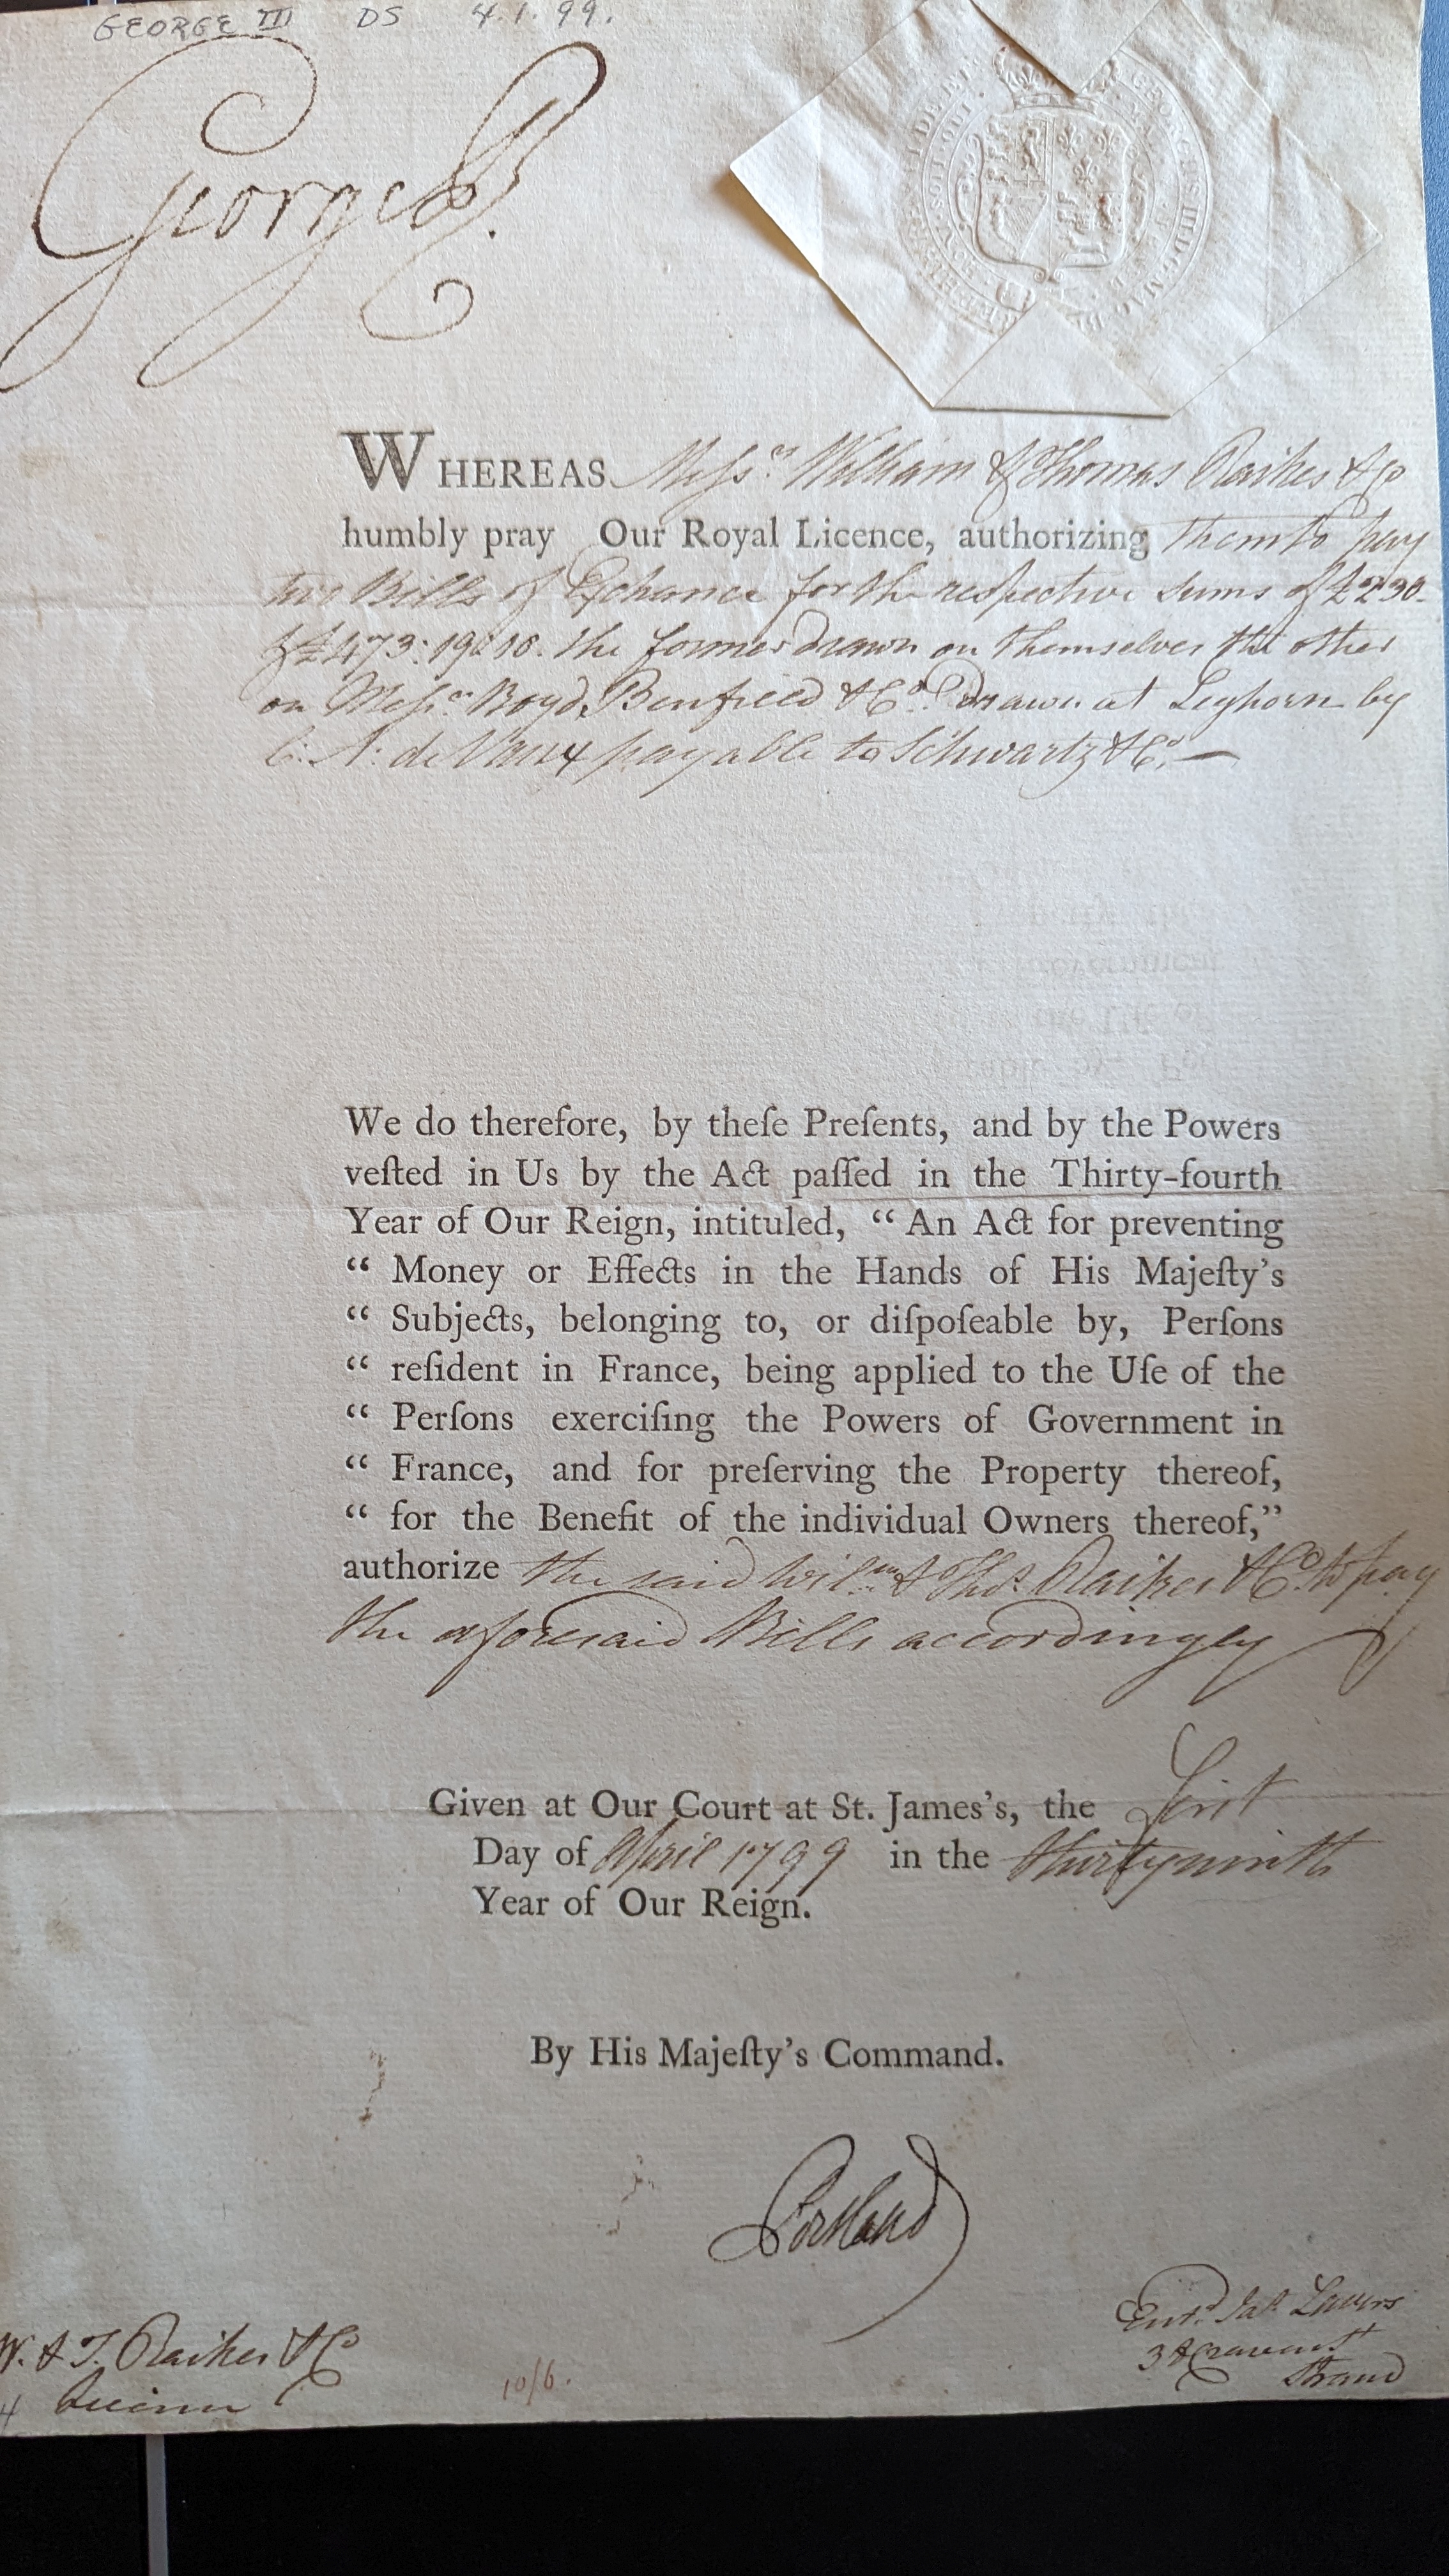 GEORGE III DS 4.1.99.
George R.
GEORGIUS III D G MAG BR
WHEREAS Messrs. William & Thomas Raikes & Co
humbly pray Our Royal Licence, authorizing them to pay
two Bills of Exchance for the respective sums of £230.
& £473:19:10. the former drawn on themselves the other
on Messrs. Boyd, Benfield & Co. Drawn at Leghorn by
C. A: de Vaux payable to Schwartz & Co. —
We do therefore, by theſe Preſents, and by the Powers
veſted in Us by the Act paſſed in the Thirty-fourth
Year of Our Reign, intituled, “ An Act for preventing
“ Money or Effects in the Hands of His Majeſty's
“ Subjects, belonging to, or diſpoſeable by, Perſons
“ reſident in France, being applied to the Uſe of the
“ Perſons exerciſing the Powers of Government in
“ France, and for preſerving the Property thereof,
“ for the Benefit of the individual Owners thereof,”
authorize the said Willm. & Thos. Raikes & Co. to pay
the aforesaid Bills accordingly
Given at Our Court at St. James's, the First
Day of April 1799 in the thirtyninth
Year of Our Reign.
By His Majeſty's Command.
Portland
W. & T. Raikes & Co
10/6.
Entd. Jas.
3
Strand